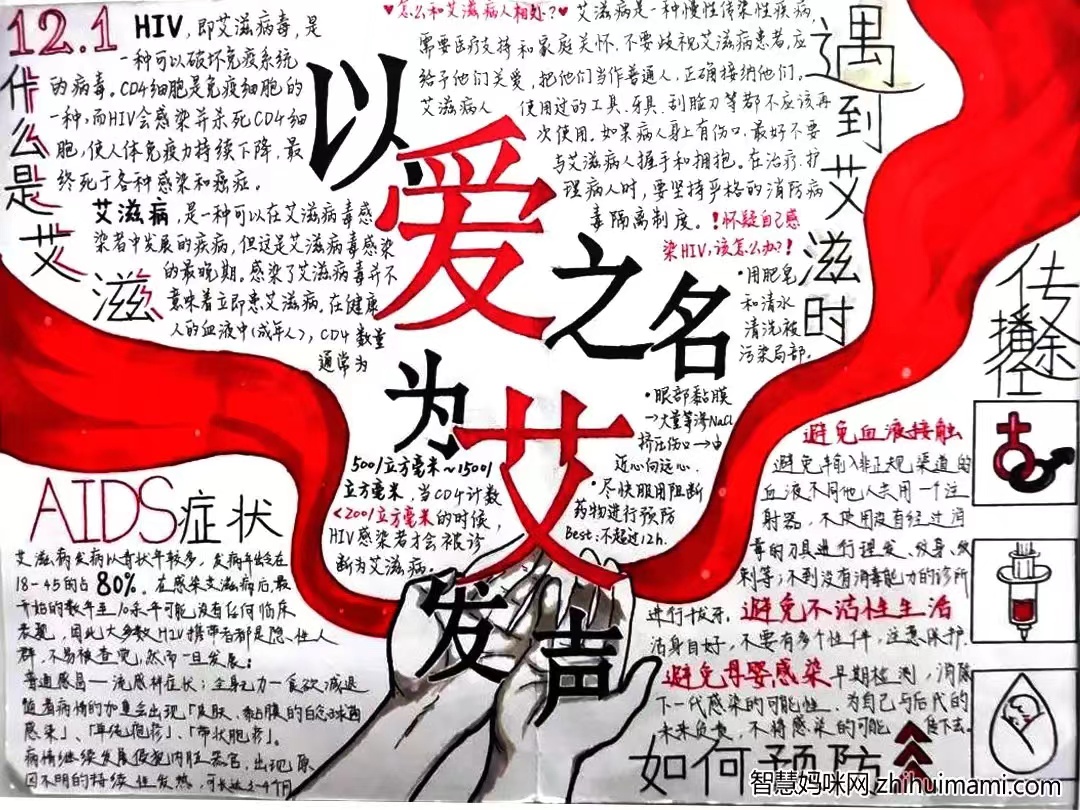 12.1
什么是艾滋
HIV，即艾滋病毒，是
一种可以破坏免疫系统
的病毒。CD4细胞是免疫细胞的
一种，而HIV会感染并杀死CD4细
胞，使人体免疫力持续下降，最
终死于各种感染和癌症。
艾滋病，是一种可以在艾滋病毒感
染者中发展的疾病，但这是艾滋病毒感染
的最晚期。感染了艾滋病毒并不
意味着立即患艾滋病。在健康
人的血液中（成年人），CD4数量
通常为
500/立方毫米~1500/
立方毫米，当CD4计数
<200/立方毫米的时候，
HIV感染者才会被诊
断为艾滋病。
以爱之名
为艾发声
♥怎么和艾滋病人相处？♥艾滋病是一种慢性传染性疾病，
需要医疗支持和家庭关怀，不要歧视艾滋病患者，应
给予他们关爱，把他们当作普通人，正确接纳他们。
艾滋病人使用过的工具、牙具、刮脸刀等都不应该再
次使用。如果病人身上有伤口，最好不要
与艾滋病人握手和拥抱。在治疗、护
理病人时，要坚持严格的消防病
毒隔离制度。！怀疑自己感
染HIV，该怎么办？！
·用肥皂
和清水
清洗被
污染局部.
·眼部黏膜
→大量等渗NaCl
挤压伤口→由
近心向远心.
·尽快服用阻断
药物进行预防
Best：不超过12h.
遇到艾滋时
传播途径
AIDS症状
艾滋病发病以青状年较多，发病年龄在
18-45的占80%. 在感染艾滋病后最
开始的数年至10余年可能没有任何临床
表现，因此大多数HIV携带者都是隐性人
群，不易被查觉，然而一旦发展：
普通感冒—流感样症状；全身乏力—食欲减退
随着病情的加重会出现「皮肤、黏膜的白念球菌
感染」、「单纯疱疹」、「带状疱疹」。
病情继续发展侵犯内脏器官，出现原
因不明的持续性发热，可长达3-4个月
避免血液接触
避免输入非正规渠道的
血液不同他人共用一个注
射器，不使用没有经过消
毒的刀具进行理发、纹身、纹
刺等；不到没有消毒能力的诊所
进行拔牙. 避免不洁性生活
洁身自好，不要有多个性伴，注意保护.
避免母婴感染早期检测，消除
下一代感染的可能性，为自己与后代的
未来负责，不将感染的可能
如何预防
智慧妈咪网 zhihuimami.com